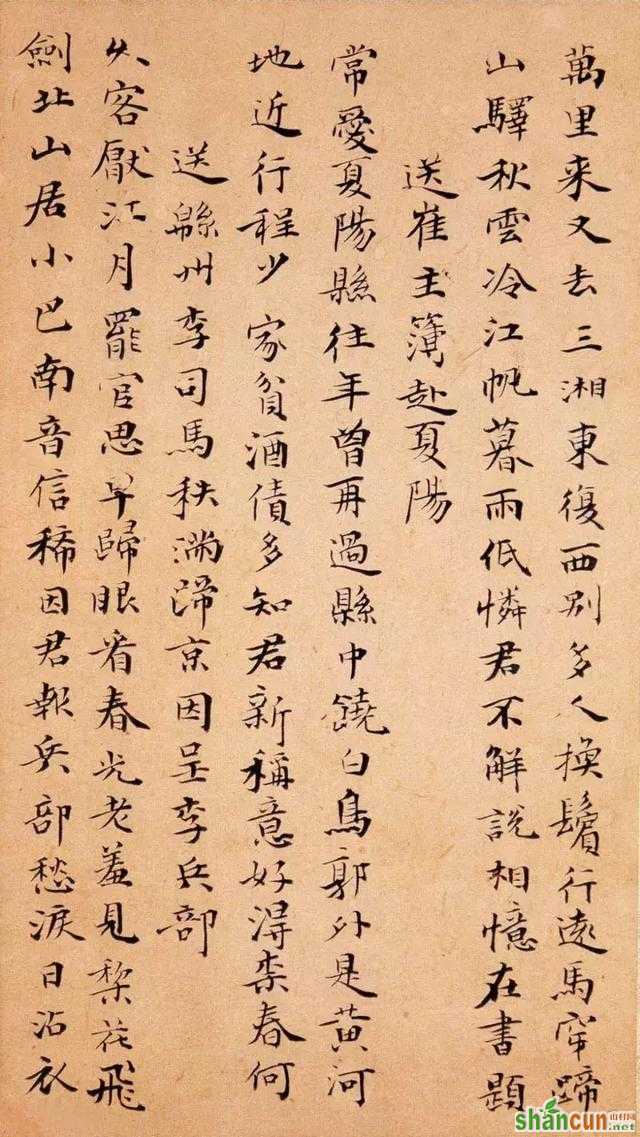 萬里来又去三湘東復西别多人換鬢行遠馬穿蹄
山驛秋雲冷江帆暮雨低憐君不解說相憶在書題
送崔主簿赴夏陽
常愛夏陽縣往年曾再過縣中饒白鳥郭外是黃河
地近行程少家貧酒債多知君新稱意好得柰春何
送緜州李司馬秩滿歸京因呈李兵部
久客厭江月罷官思早歸眼看春光老羞見梨花飛
劍北山居小巴南音信稀因君報兵部愁淚日沾衣
shancun 山村网
.net